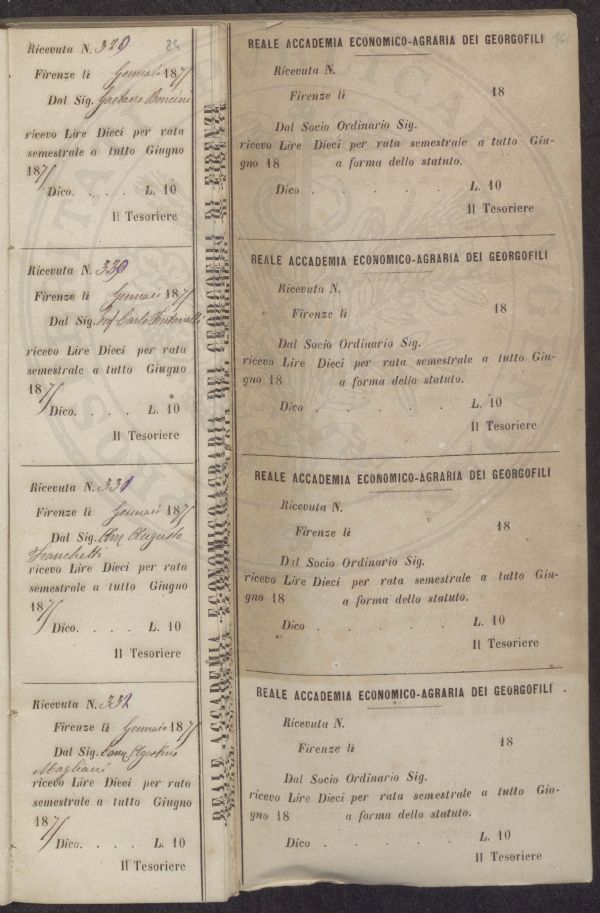 Ricevuta N. 329 84
Firenze li Gennaio 1871
Dal Sig. Gaetano Boncini
ricevo Lire Dieci per rata
semestrale a tutto Giugno
1871
Dico. . . . . L. 10
Il Tesoriere
Ricevuta N. 330
Firenze li Gennaio 1871
Dal Sig. Prof Carlo
ricevo Lire Dieci per rata
semestrale a tutto Giugno
1871
Dico. . . . . L. 10
Il Tesoriere
Ricevuta N. 331
Firenze li Gennaio 1871
Dal Sig. Augusto
Franchetti
ricevo Lire Dieci per rata
semestrale a tutto Giugno
1871
Dico. . . . . L. 10
Il Tesoriere
Ricevuta N. 332
Firenze li Gennaio 1871
Dal Sig. Comm Agostino
Magliani
ricevo Lire Dieci per rata
semestrale a tutto Giugno
1871
Dico. . . . . L. 10
Il Tesoriere
REALE ACCADEMIA ECONOMICO-AGRARIA DEI GEORGOFILI DI FIRENZE
REALE ACCADEMIA ECONOMICO-AGRARIA DEI GEORGOFILI
Ricevuta N.
Firenze li 18
Dal Socio Ordinario Sig.
ricevo Lire Dieci per rata semestrale a tutto Giu-
gno 18 a forma dello statuto.
Dico . . . . . L. 10
Il Tesoriere
REALE ACCADEMIA ECONOMICO-AGRARIA DEI GEORGOFILI
Ricevuta N.
Firenze li 18
Dal Socio Ordinario Sig.
ricevo Lire Dieci per rata semestrale a tutto Giu-
gno 18 a forma dello statuto.
Dico . . . . . L. 10
Il Tesoriere
REALE ACCADEMIA ECONOMICO-AGRARIA DEI GEORGOFILI
Ricevuta N.
Firenze li 18
Dal Socio Ordinario Sig.
ricevo Lire Dieci per rata semestrale a tutto Giu-
gno 18 a forma dello statuto.
Dico . . . . . L. 10
Il Tesoriere
REALE ACCADEMIA ECONOMICO-AGRARIA DEI GEORGOFILI
Ricevuta N.
Firenze li 18
Dal Socio Ordinario Sig.
ricevo Lire Dieci per rata semestrale a tutto Giu-
gno 18 a forma dello statuto.
Dico . . . . . L. 10
Il Tesoriere